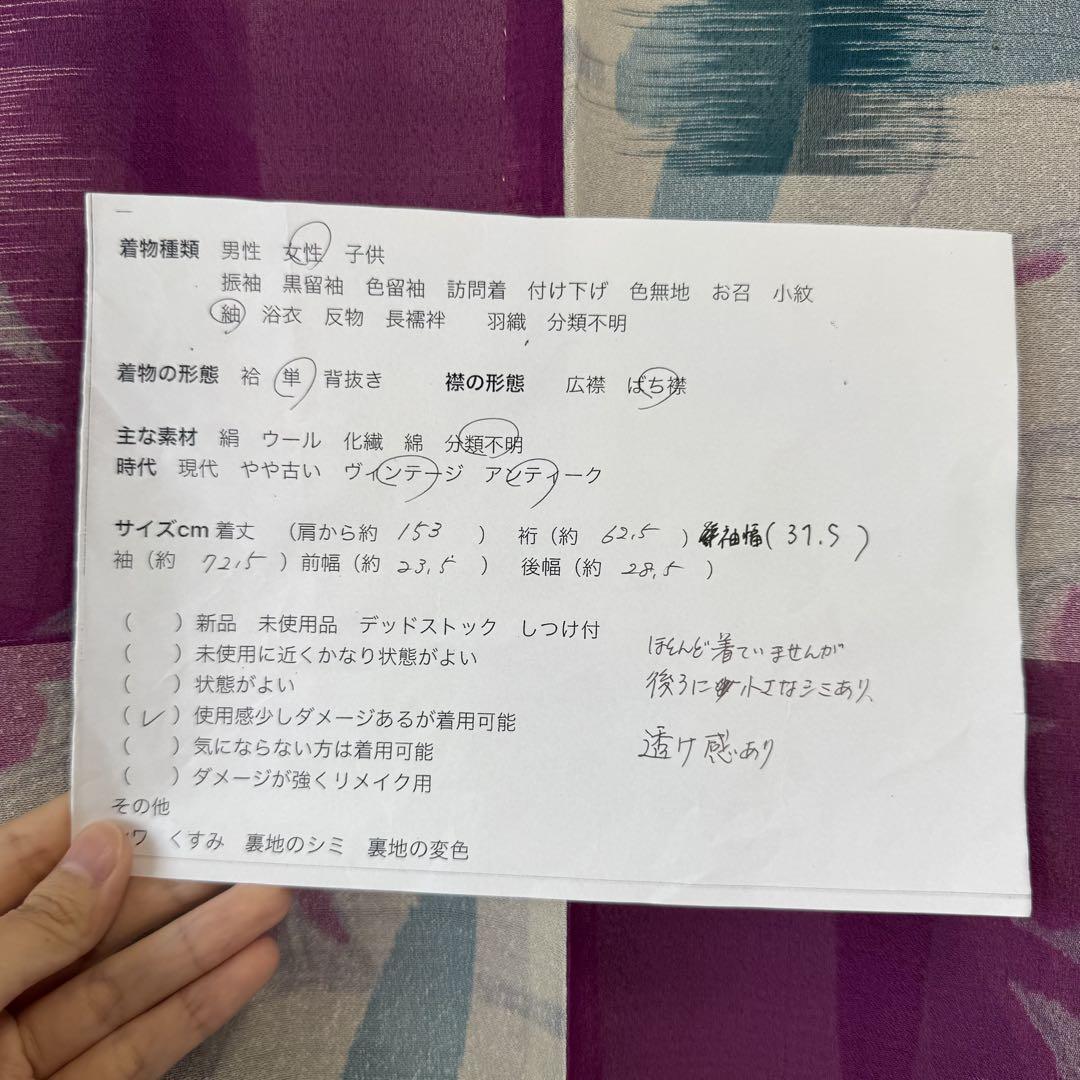 着物種類 男性 女性 子供
振袖 黒留袖 色留袖 訪問着 付け下げ 色無地 お召 小紋
紬 浴衣 反物 長襦袢 羽織 分類不明
着物の形態 袷 単 背抜き 襟の形態 広襟 ばち襟
主な素材 絹 ウール 化繊 綿 分類不明
時代 現代 やや古い ヴィンテージ アンティーク
サイズcm 着丈 (肩から約 153 ) 裄(約 62,5 ) 袖幅(31.5)
袖(約 72,5 )前幅(約 23,5 ) 後幅(約 28,5 )
( )新品 未使用品 デッドストック しつけ付
( )未使用に近くかなり状態がよい
( )状態がよい
(✓)使用感少しダメージあるが着用可能
( )気にならない方は着用可能
( )ダメージが強くリメイク用
ほとんど着ていませんが
後ろに小さなシミあり、
透け感あり
その他
ワ くすみ 裏地のシミ 裏地の変色